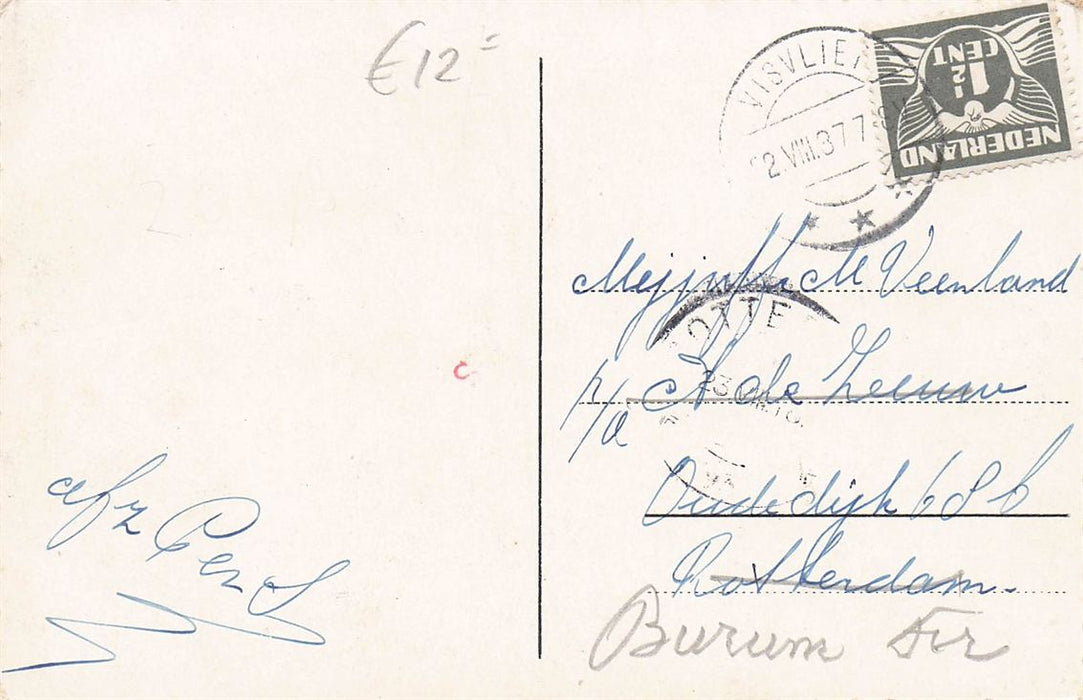 €12=
VISVLIET
2.VIII.37 7
NEDERLAND
1½
CENT
Mejjuff. M Veenland
OTTE
p/a A de Zeeuw
23
Oudedijk 68b
Rotterdam.
Burum
afz